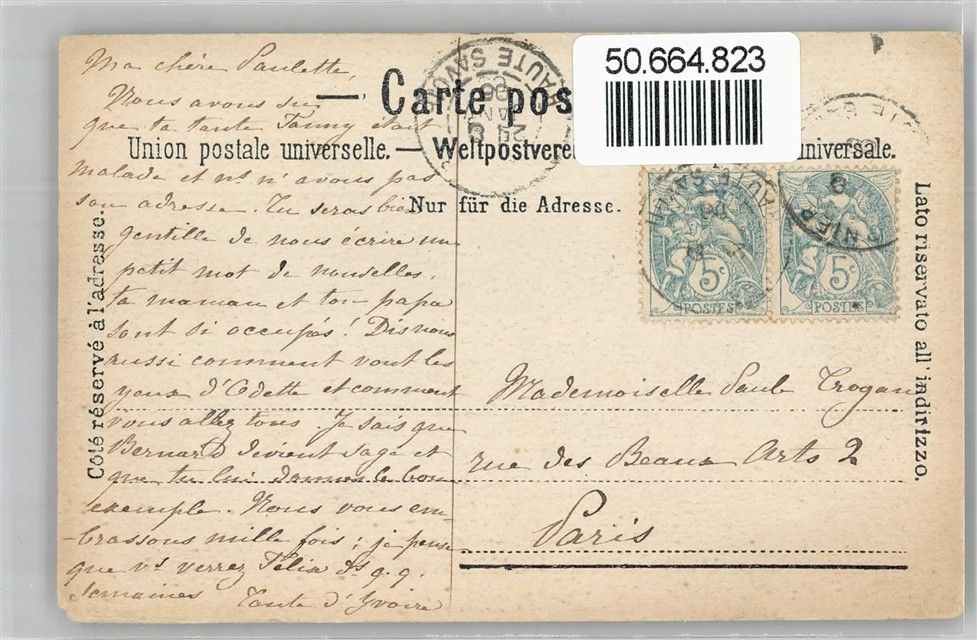 Ma chère Paulette,
Nous avons su
que ta tante Fanny était
malade et ns n'avons pas
son adresse. Tu serais bien
gentille de nous écrire un
petit mot de nouvelles.
ta maman et ton papa
sont si occupés! Dis nous
aussi comment vont les
yeux d'Odette et comment
vous allez tous. Je sais que
Bernard devient sage et
que tu lui donnes le bon
exemple. Nous vous em-
-brassons mille fois; je pense
que vs verrez Félix ds q.q.
semaines Tante d'Yvoire
Carte pos
50.664.823
Union postale universelle. — Weltpostvere
universale.
Nur für die Adresse.
Côté réservé à l'adresse.
Lato riservato all' indirizzo.
HAUTE SAVOIE
24
5c
POSTES
5c
POSTES
Mademoiselle Paule
rue des Beaux Arts 2
Paris